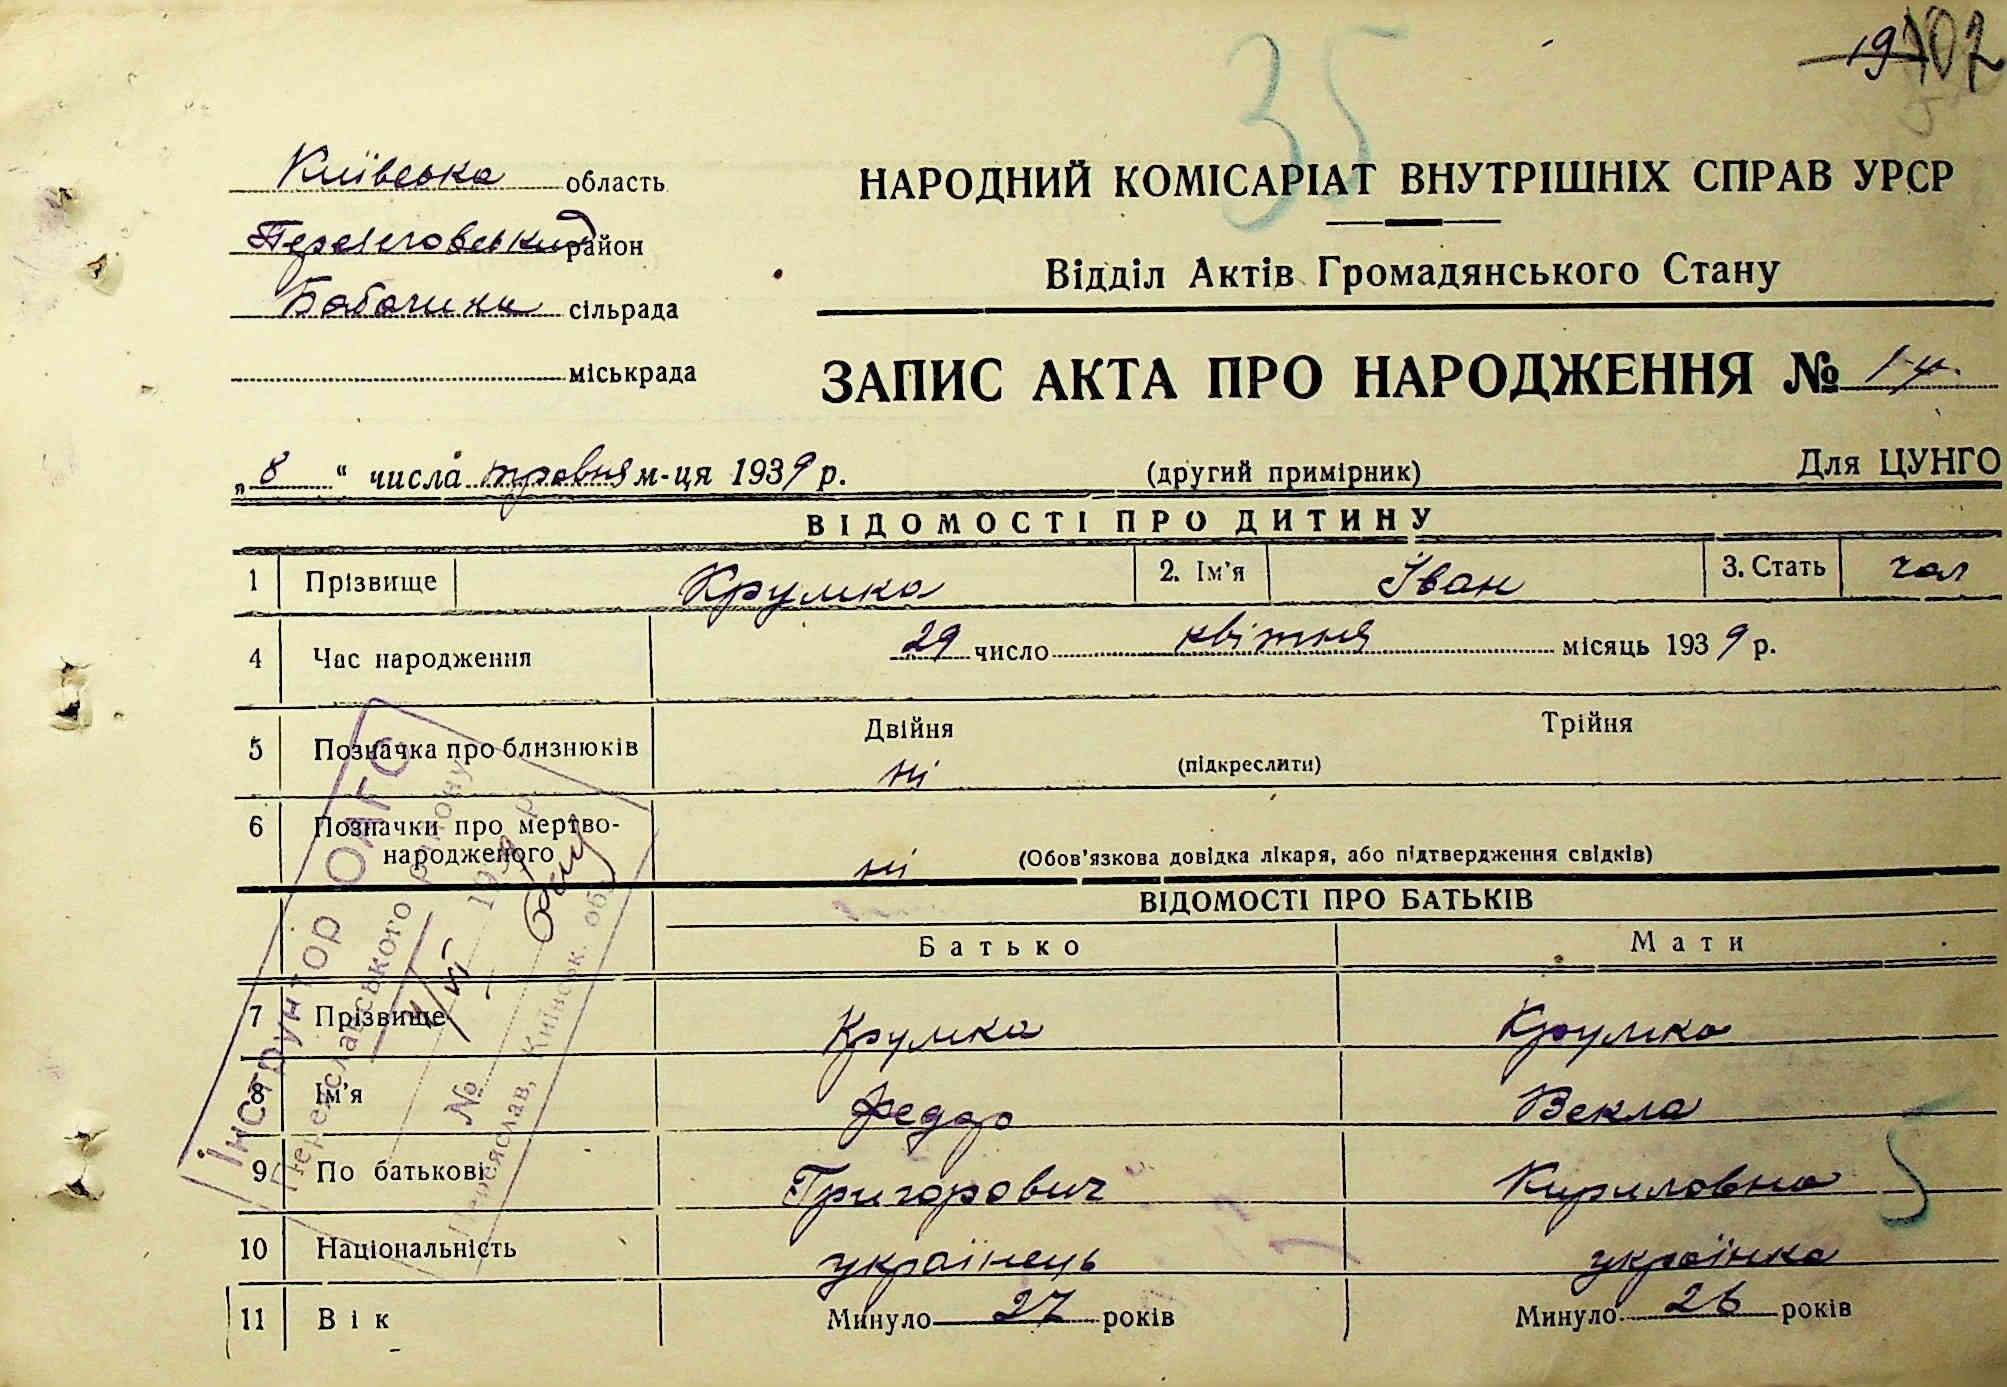 35
19 102
Київська область
Переяславський район
Бабачиха сільрада
міськрада
НАРОДНИЙ КОМІСАРІАТ ВНУТРІШНІХ СПРАВ УРСР
Відділ Актів Громадянського Стану
ЗАПИС АКТА ПРО НАРОДЖЕННЯ № 14
„8“ числа травня м-ця 1939 р. (другий примірник) Для ЦУНГО
ВІДОМОСТІ ПРО ДИТИНУ
1 Прізвище Крумка 2. Ім'я Іван 3. Стать чол
4 Час народження 29 число квітня місяць 1939 р.
5 Позначка про близнюків Двійня Трійня
ні (підкреслити)
6 Позначки про мертво-
народженого ні (Обов'язкова довідка лікаря, або підтвердження свідків)
ВІДОМОСТІ ПРО БАТЬКІВ
Батько Мати
7 Прізвище Крумка Крумка
8 Ім'я Федор Векла
9 По батькові Григорович Кириловна
5
10 Національність українець українка
11 Вік Минуло 27 років Минуло 26 років
Інструктор ОАГС
Переяславського району
№ 193 р.
Переяслав, Київськ. обл.